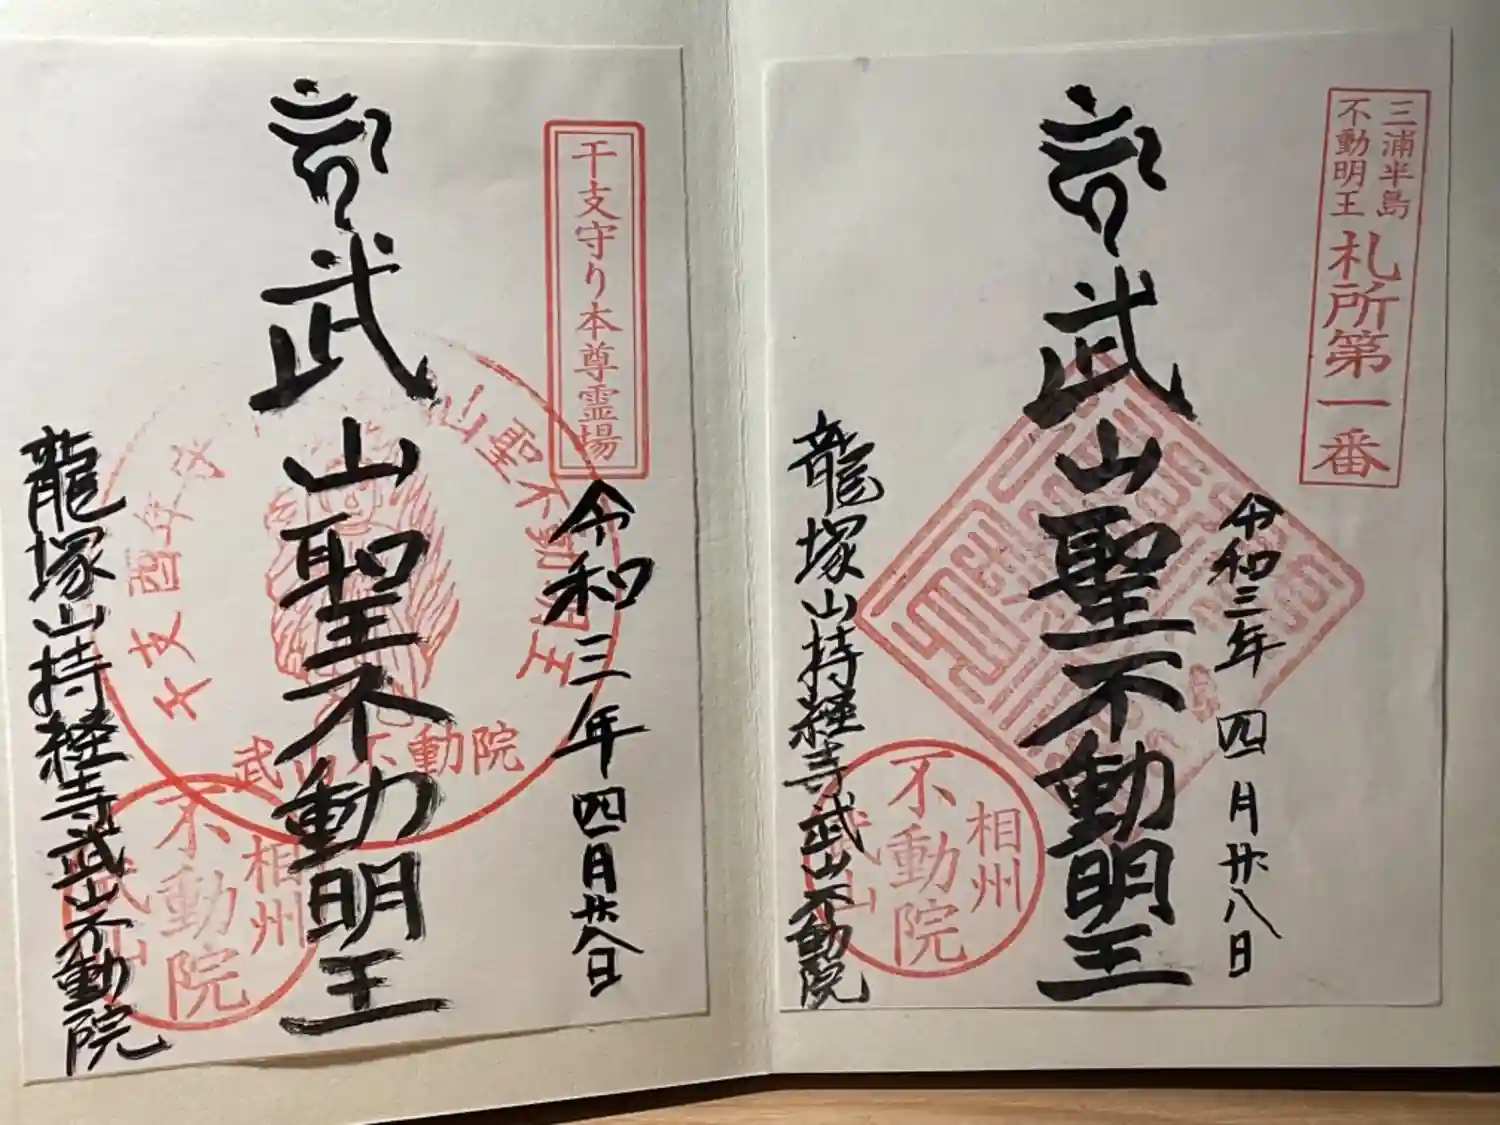 三浦半島
不動明王
札所第一番
令和三年四月廿八日
武山聖不動明王
龍塚山持経寺武山不動院
相州
不動院
武山
干支守り本尊霊場
令和三年四月廿八日
武山聖不動明王
龍塚山持経寺武山不動院
武山不動院
相州
不動院
武山